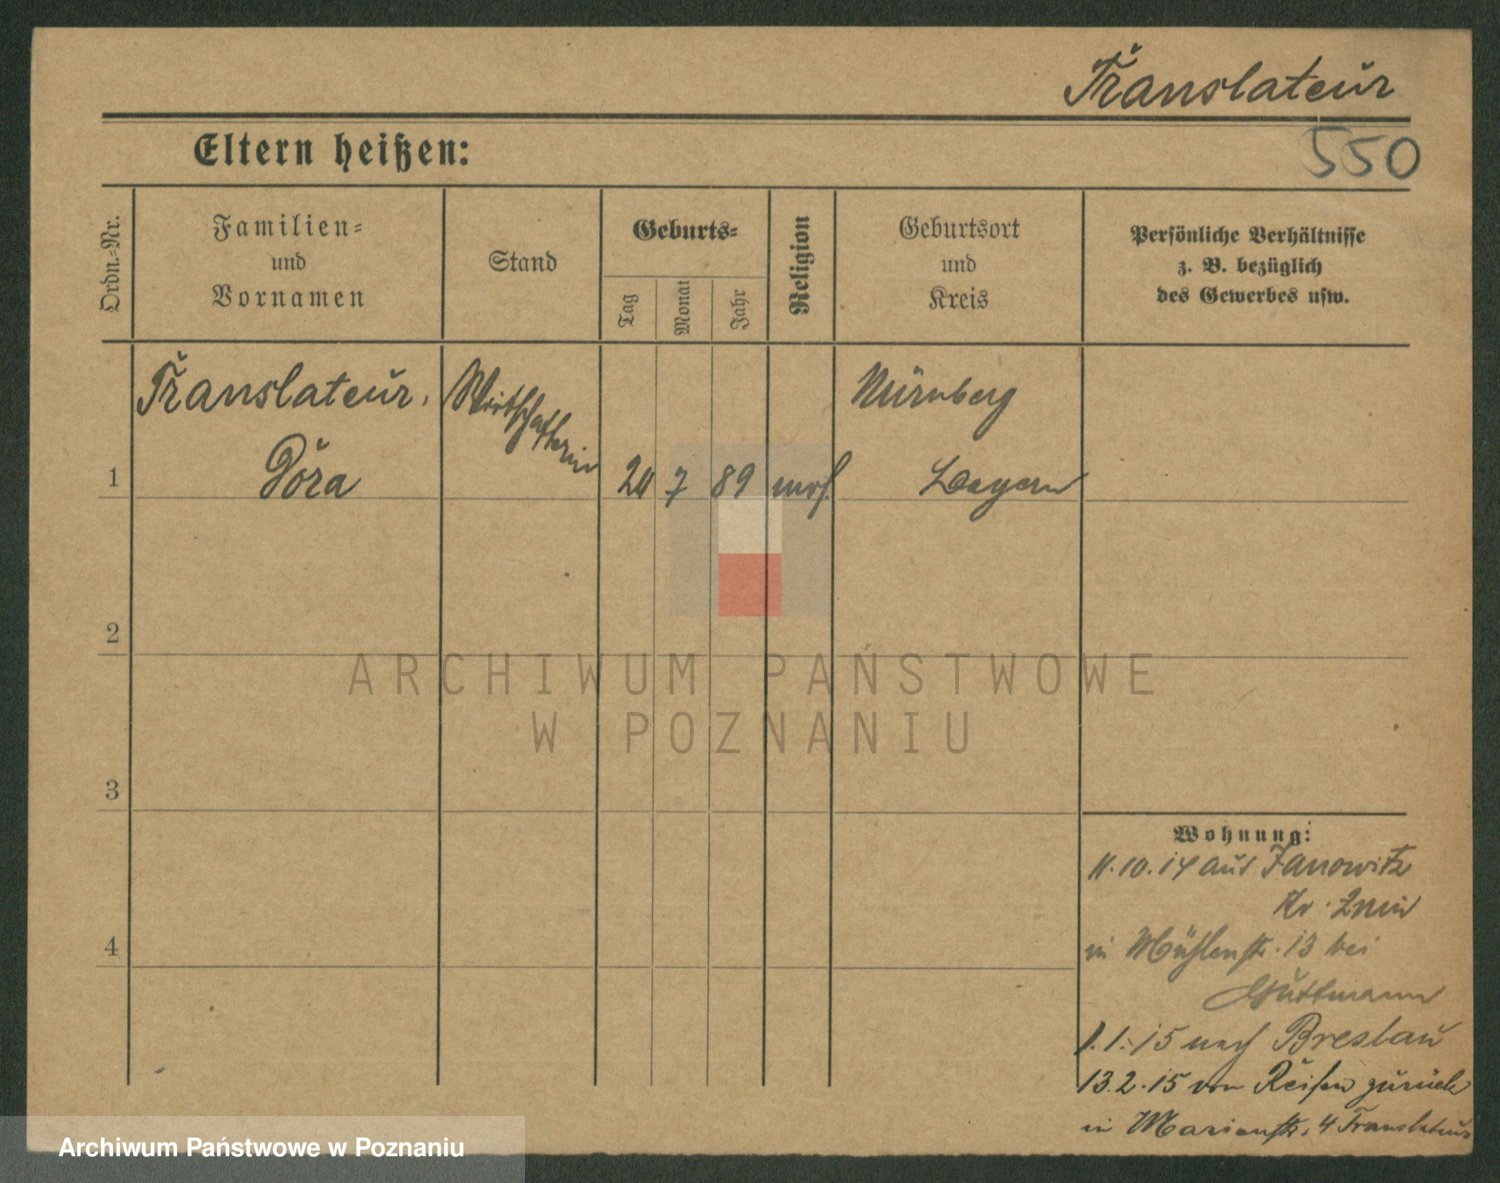 Translateur
550
Eltern heißen:
Ordn.-Nr.
Familien-
und
Vornamen
Stand
Geburts-
Tag
Monat
Jahr
Religion
Geburtsort
und
Kreis
Persönliche Verhältnisse
z. B. bezüglich
des Gewerbes usw.
Translateur,
Wirtschafterin
Nürnberg
1
Dora
24
7
89
mos.
Bayern
2
3
4
Wohnung:
11.10.14 aus Janowitz
Kr. Znin
in Mühlenstr. 13 bei
Guttmann
1.1.15 nach Breslau
13.2.15 von Reisen zurück
in Marienstr. 4 Translateur
ARCHIWUM PAŃSTWOWE
W POZNANIU
Archiwum Państwowe w Poznaniu